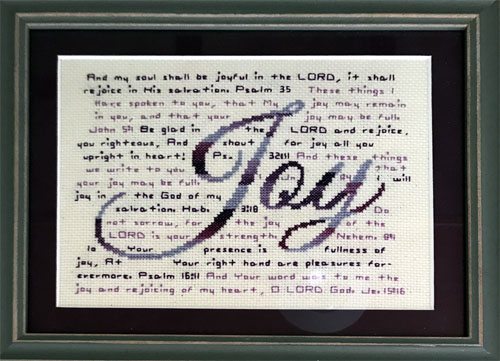 And my soul shall be joyful in the LORD, it shall
rejoice in His salvation. Psalm 35 These things I
have spoken to you, that My joy may remain
in you, and that your joy may be full.
John 54 Be glad in the LORD and rejoice,
you righteous, And shout for joy all you
upright in heart! Ps. 32:11 And these things
we write to you that
your joy may be full. I will
joy in the God of my
salvation. Hab. 3:18 Do
not sorrow, for the joy of the
LORD is your strength Nehem. 8:
10 Your presence is fullness of
joy, At Your right hand are pleasures for-
evermore. Psalm 16:11 And Your word was to me the
joy and rejoicing of my heart, O LORD God. Je. 15:16
Joy